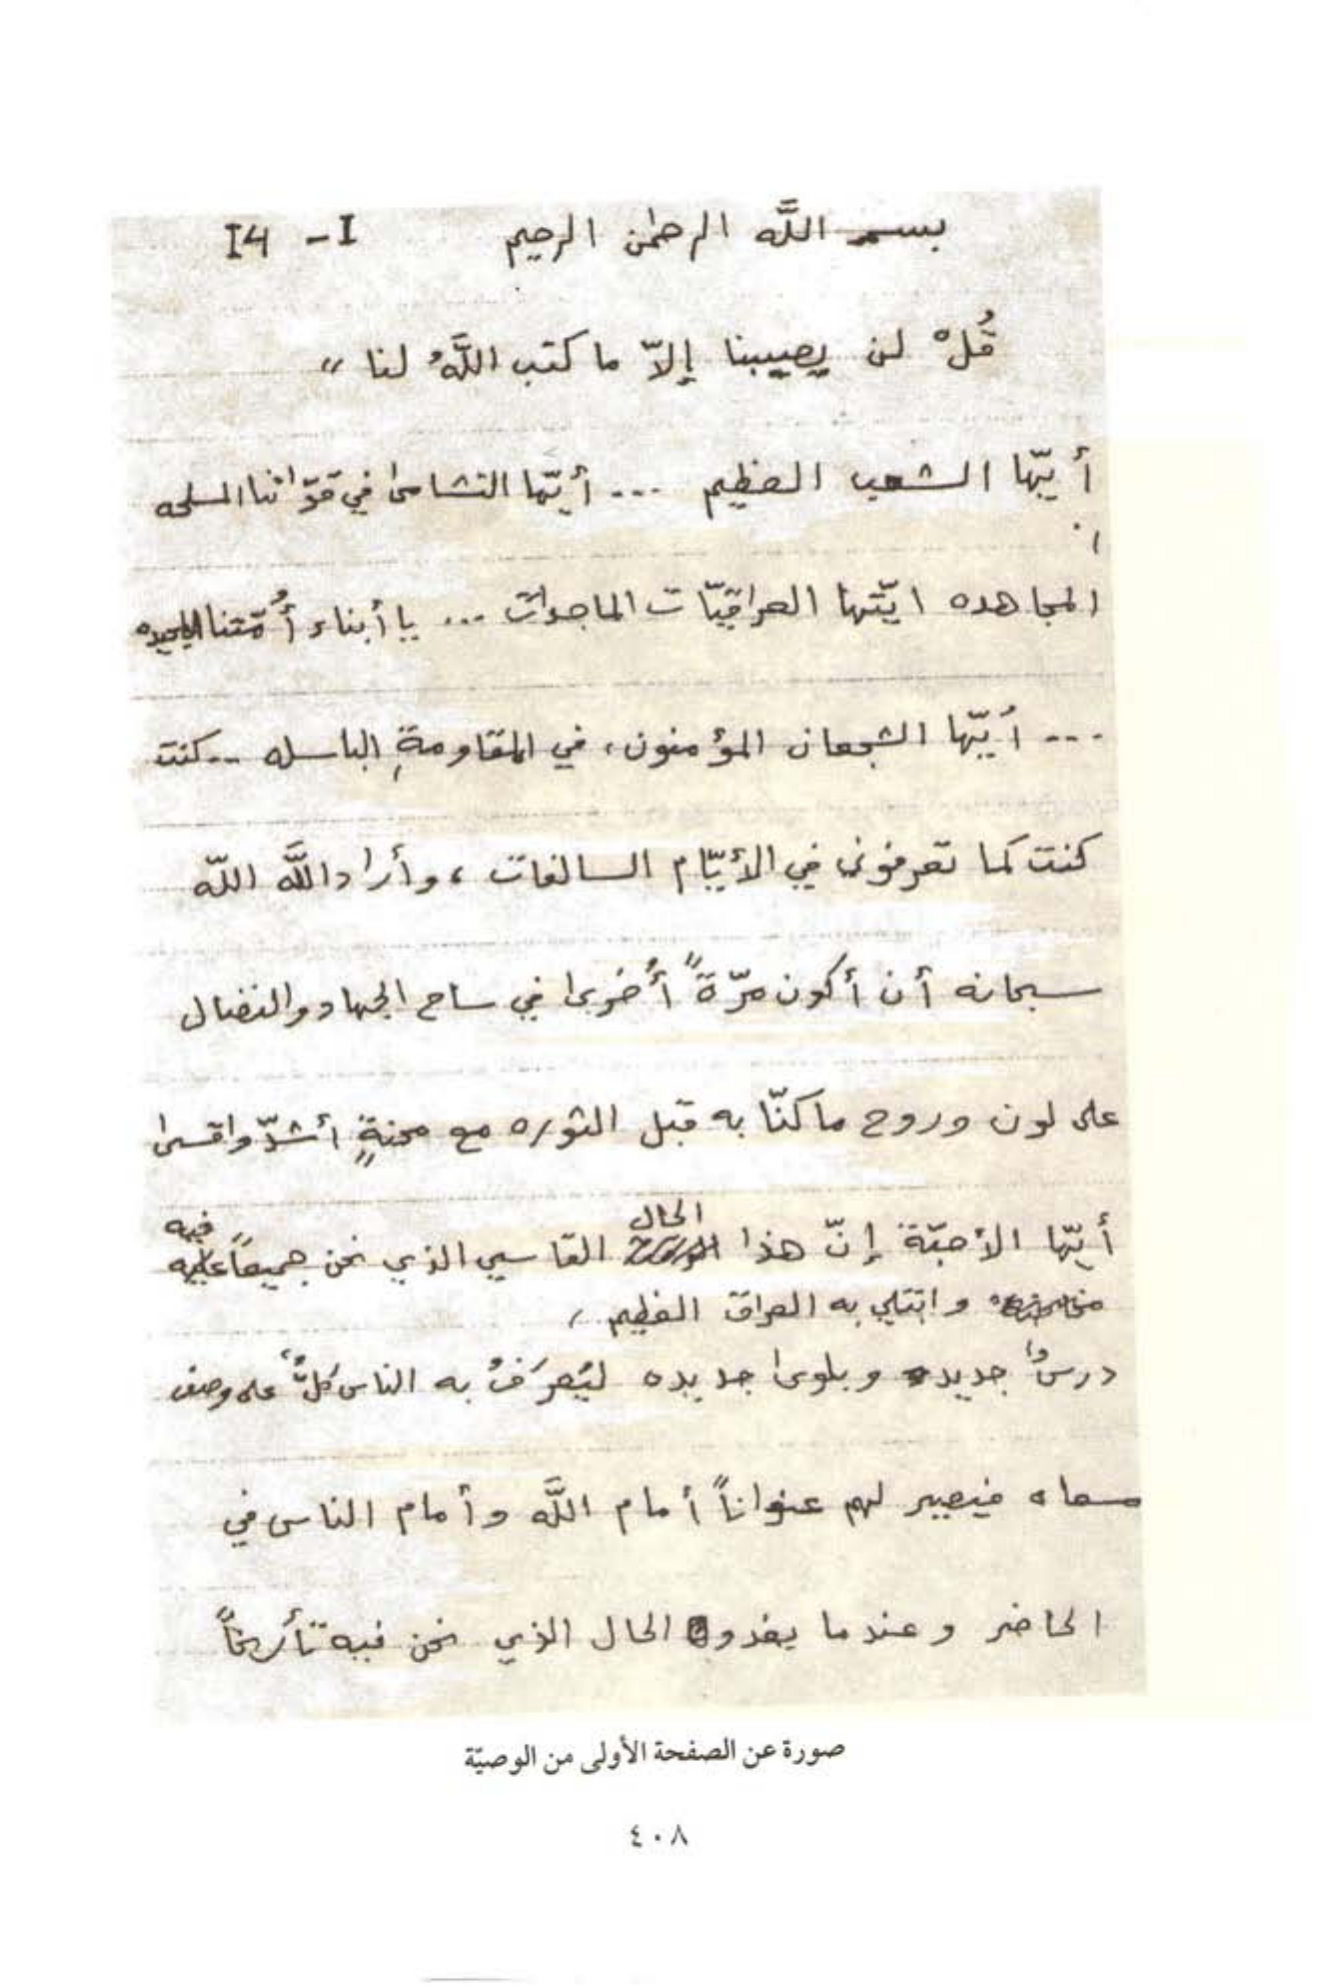 بسم اللَّه الرحمٰن الرحيم I4 - I
قُلْ لن يصيبنا إلاّ ما كتب اللَّهُ لنا "
أيّها الشعب العظيم ... أيّها النشامىٰ في قوّاتنا المسلحه
المجاهده ايّتها العراقيّات الماجدات ... يا أبناء أُمّتنا المجيده
... أيّها الشجعان المؤمنون، في المقاومةِ الباسله .. كنت
كنت كما تعرفوني في الأيّام السالفات، وأراد اللَّه اللّه
سبحانه أن أكون مرّةً أُخرىٰ في ساح الجهاد والنضال
على لون وروح ما كنّا به قبل الثوره مع محنةٍ أشدّ واقسىٰ
أيّها الأحبّة إنّ هذا الحال القاسي الذي نحن جميعاً فيه
وابتلي به العراق العظيم،
درسٌ جديد وبلوىٰ جديده ليُعرَفُ به الناس كلٌّ على وصف
مسعاه فيصير لهم عنواناً أمام اللَّه وأمام الناس في
الحاضر وعندما يغدو الحال الذي نحن فيه تأريخاً
صورة عن الصفحة الأولى من الوصيّة
٤٠٨